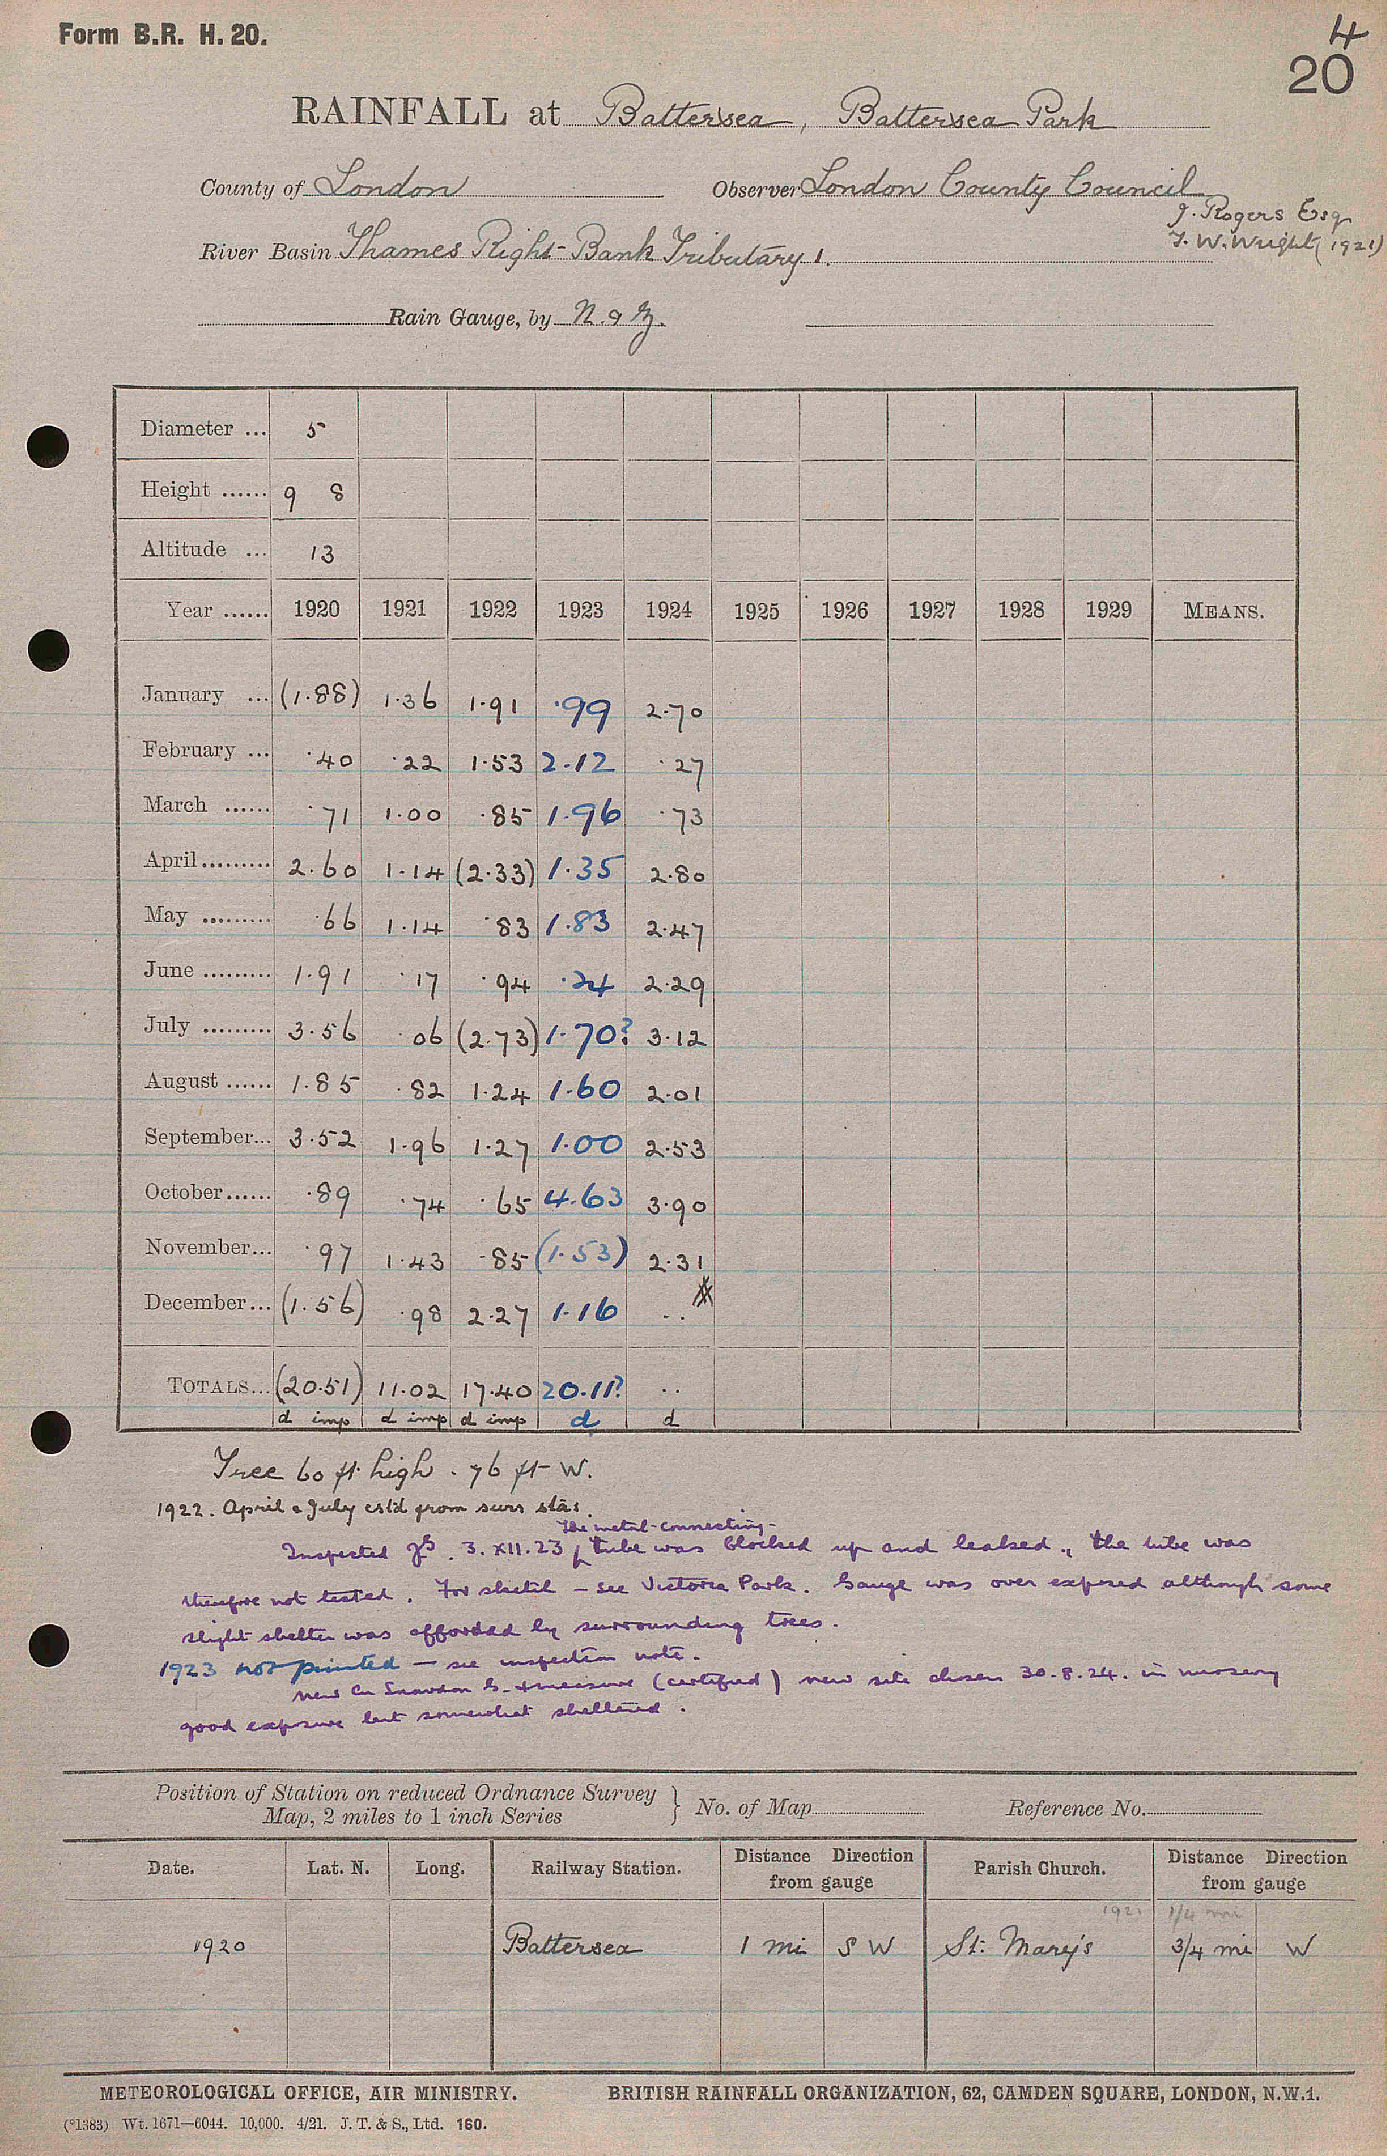 Form B.R. H. 20.
4
20
RAINFALL at Battersea, Battersea Park
County of London Observer London County Council
J. Rogers Esq
River Basin Thames Right Bank Tributary 1. J. W. Wright (1921)
Rain Gauge, by N. & Z.
Diameter ... 5
Height ...... 9 8
Altitude ... 13
Year ...... 1920 1921 1922 1923 1924 1925 1926 1927 1928 1929 MEANS.
January ... (1.88) 1.36 1.91 .99 2.70
February ... .40 .22 1.53 2.12 .27
March ...... .71 1.00 .85 1.96 .73
April......... 2.60 1.14 (2.33) 1.35 2.80
May ......... .66 1.14 .83 1.83 2.47
June ......... 1.91 .17 .94 .24 2.29
July ......... 3.56 .06 (2.73) 1.70? 3.12
August ...... 1.85 .82 1.24 1.60 2.01
September... 3.52 1.96 1.27 1.00 2.53
October...... .89 .74 .65 4.63 3.90
November... .97 1.43 .85 (1.53) 2.31
December... (1.56) .98 2.27 1.16 ..
TOTALS... (20.51) 11.02 17.40 20.11? ..
d imp d imp d imp d d
Tree 60 ft high . 76 ft W.
1922. April & July estd from surr stas.
The metal-connecting-
Inspected 3.XII.23 tube was blocked up and leaked, the tube was
therefore not tested. For sketch - see Victoria Park. Gauge was over exposed although some
slight shelter was afforded by surrounding trees.
1923 not printed - see inspection note.
new Cu Snowdon G. & measure (certified) new site chosen 30.8.24. in nursery
good exposure but somewhat sheltered.
Position of Station on reduced Ordnance Survey
Map, 2 miles to 1 inch Series } No. of Map Reference No.
Date. Lat. N. Long. Railway Station. Distance Direction from gauge Parish Church. Distance Direction from gauge
1921 1/4 mi
1920 Battersea 1 mi S W St. Mary's 3/4 mi W
METEOROLOGICAL OFFICE, AIR MINISTRY. BRITISH RAINFALL ORGANIZATION, 62, CAMDEN SQUARE, LONDON, N.W.1.
(*1383) Wt. 1671—6044. 10,000. 4/21. J. T. & S., Ltd. 160.